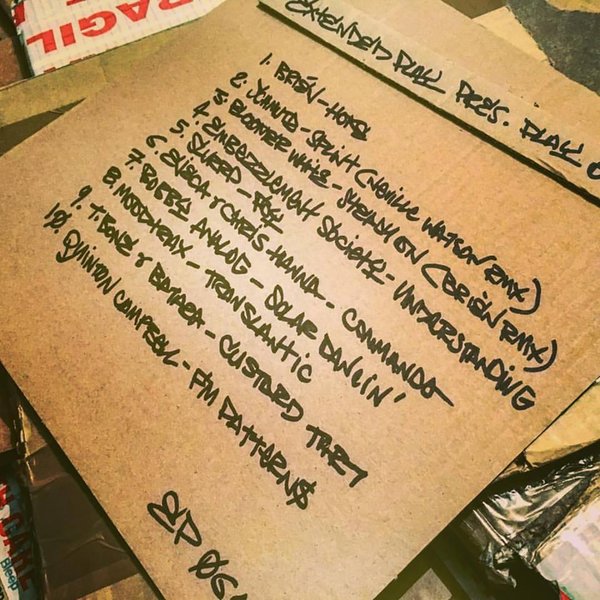 RAGIL
EXTENDED PLAY PRES. PLAY
1. BRIÉN - HOME
2. JOHNNED - SPLINT (NEVILLE WATSON RMX)
3. BLOOMER WHITE - STEADY ON (BRIÉN RMX)
4. EMBEZZLEMENT SOCIETY - UNDERSTANDING
5. SLUFED -
6. & CHRIS HANNA - COMMANDO
7. BOBBY ANALOG - SOLAR DANCIN'
8. MOODYMIX - TRANSLANTIC
9. T-BONZ & BATACA - CUSTARD TART
10. QUINTON CAMPBELL - FM PATTERNS
CARE
Bleep